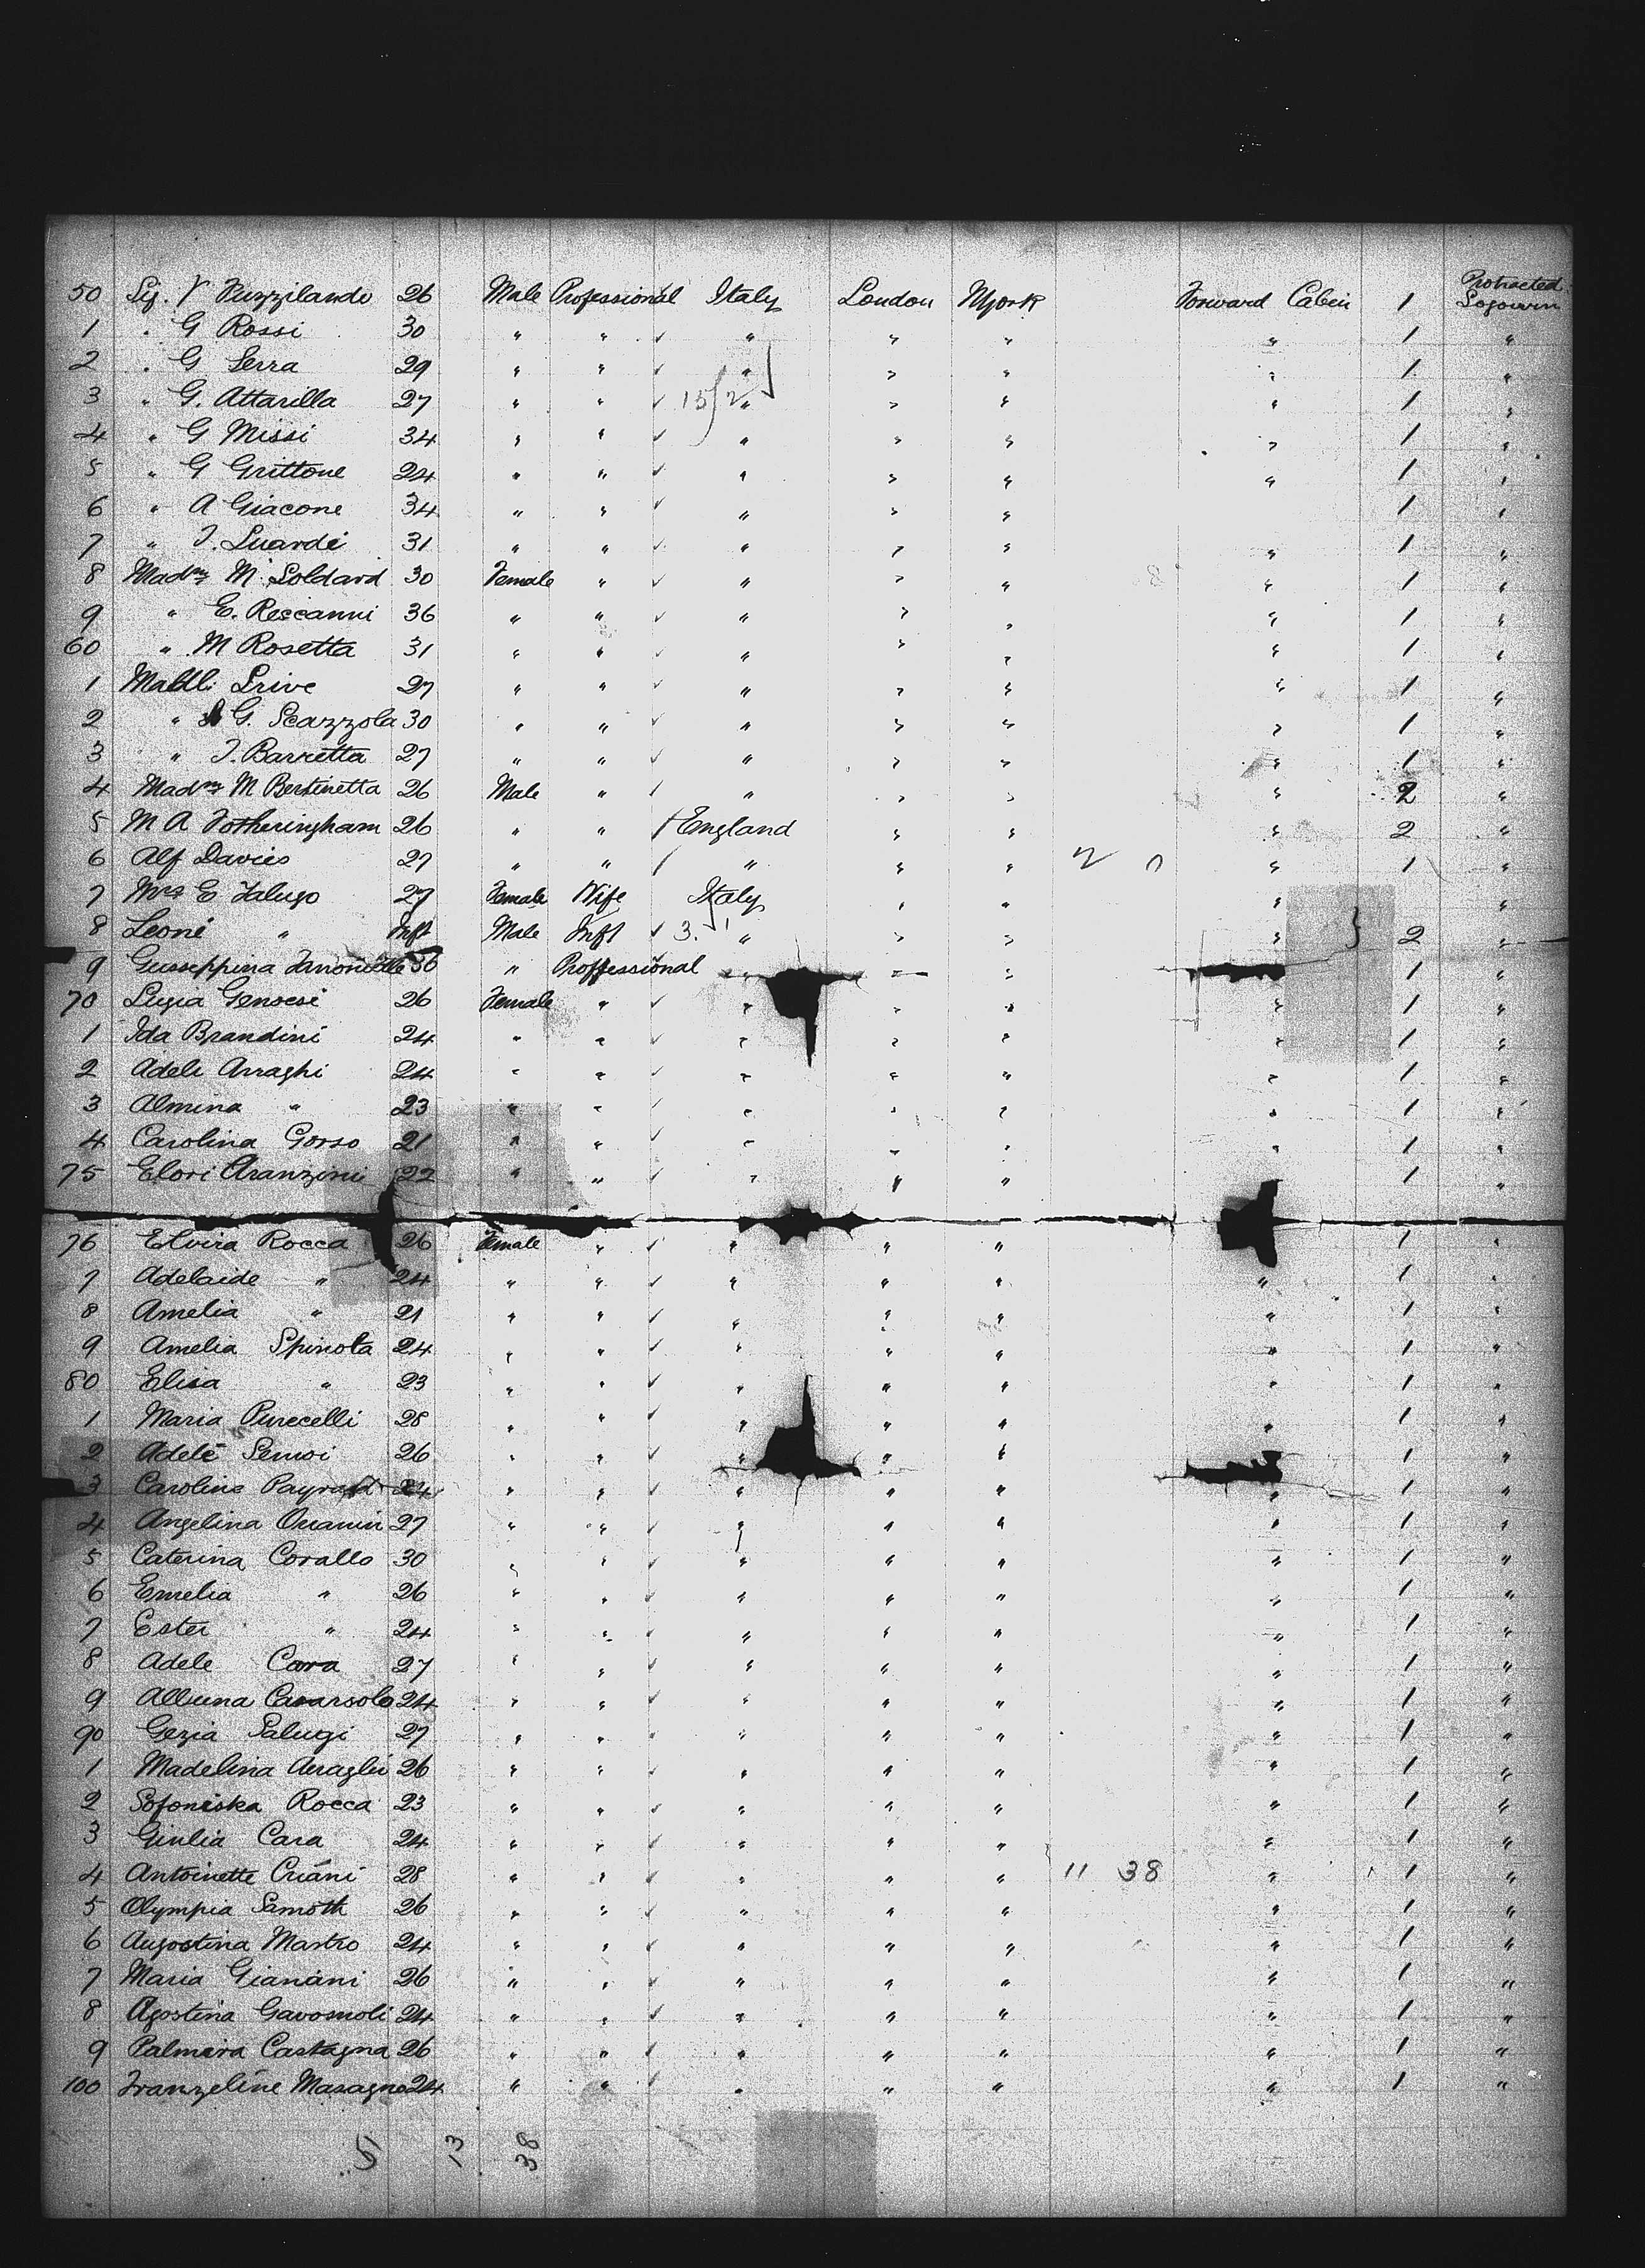 50 Sig. V Puzzilando 26 Male Professional Italy London N York Forward Cabin 1 Protracted Sogourn
1 " G Rossi 30 " " " " " " 1 "
2 " G Serra 29 " " " " " " 1 "
3 " G. Attarilla 27 " " 15/2 " " " " 1 "
4 " G Missi 34 " " " " " " 1 "
5 " G Grittone 24 " " " " " " 1 "
6 " A Giacone 34 " " " " " 1 "
7 " J. Luardi 31 " " " " " " 1 "
8 Madme M Soldard 30 Female " " " " " 1 "
9 " E. Rescanni 36 " " " " " " 1 "
60 " M Rosetta 31 " " " " " " 1 "
1 Madlli Srive 27 " " " " " " 1 "
2 " G. Scazzola 30 " " " " " " 1 "
3 " J. Barretta 27 " " " " " " 1 "
4 Madme M Bertinetta 26 Male " " " " " 2 "
5 M A Fotheringham 26 " " England " " " 2 "
6 Alf Davies 27 " " " " " 2 0 " 1 "
7 Mrs E Falugo 27 Female Wife Italy " " " "
8 Leoni " Inft Male Inft 3. 1 " " " " 2 "
9 Gusseppina 30 " Proffessional " " " 1 "
70 Lugia Genoesi 26 Female " " " " " 1 "
1 Ida Brandini 24 " " " " " " 1 "
2 Adele Arraghi 24 " " " " " " 1 "
3 Almina " 23 " " " " " " 1 "
4 Carolina Gorso 21 " " " " " " 1 "
75 Elori Aranzini 22 " " " " " 1 "
76 Elvira Rocca 26 Female " " " " 1 "
7 Adelaide " 24 " " " " " " 1 "
8 Amelia " 21 " " " " " " 1 "
9 Amelia Spinota 24 " " " " " " 1 "
80 Elisa " 23 " " " " " " 1 "
1 Maria Purecelli 28 " " " " " " 1 "
2 Adele Semoi 26 " " " " " 1 "
3 Caroline 24 " " " " " " 1 "
4 Angelina 27 " " " " " " 1 "
5 Caterina Corallo 30 " " " " " " 1 "
6 Emelia " 26 " " " " " " 1 "
7 Ester " 24 " " " " " " 1 "
8 Adele Cara 27 " " " " " " 1 "
9 Albuna Casarsolo 24 " " " " " " 1 "
90 Gezia Salugi 27 " " " " " " 1 "
1 Madelina Arraghi 26 " " " " " " 1 "
2 Sofoniska Rocca 23 " " " " " " 1 "
3 Giulia Cara 24 " " " " " " 1 "
4 Antoinette Criani 28 " " " " " 11 38 " 1 "
5 Olympia Samoth 26 " " " " " " 1 "
6 Augostina Mastro 24 " " " " " " 1 "
7 Maria Gianani 26 " " " " " " 1 "
8 Agostina Gavosnoli 24 " " " " " " 1 "
9 Palmira Castagna 26 " " " " " " 1 "
100 Franzeline Masagno 24 " " " " " " 1 "
5 13 38